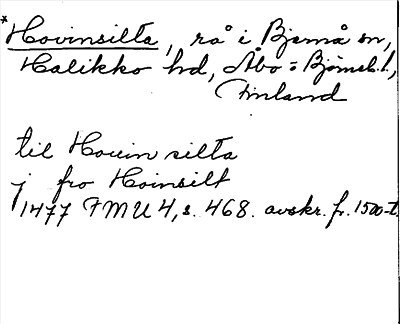 * Hovinsilta, rå i Bjernå sn,
Halikko hd, Åbo = Björneb.l.,
Finland
til Houin silta
j fro Hoinsilt
1477 FMU 4, s. 468. avskr. fr. 1500-t.